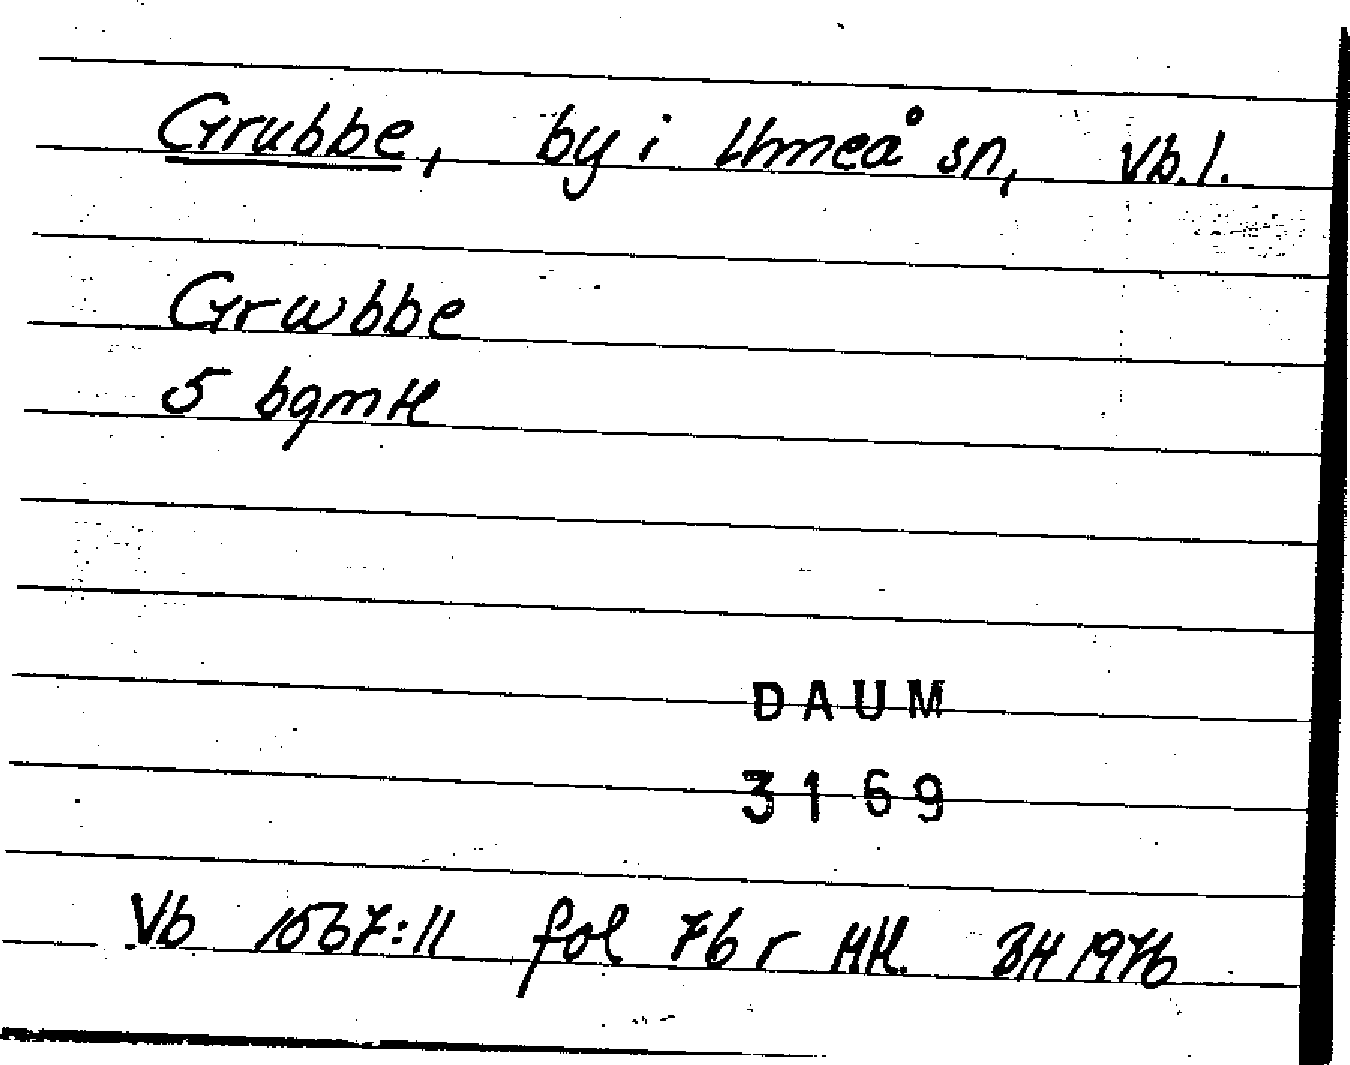 Grubbe, by i Umeå sn, Vb.l.
Grwbbe
5 bgmH
DAUM
3169
Vb 1567:11 fol 76 r HH. BH 1976